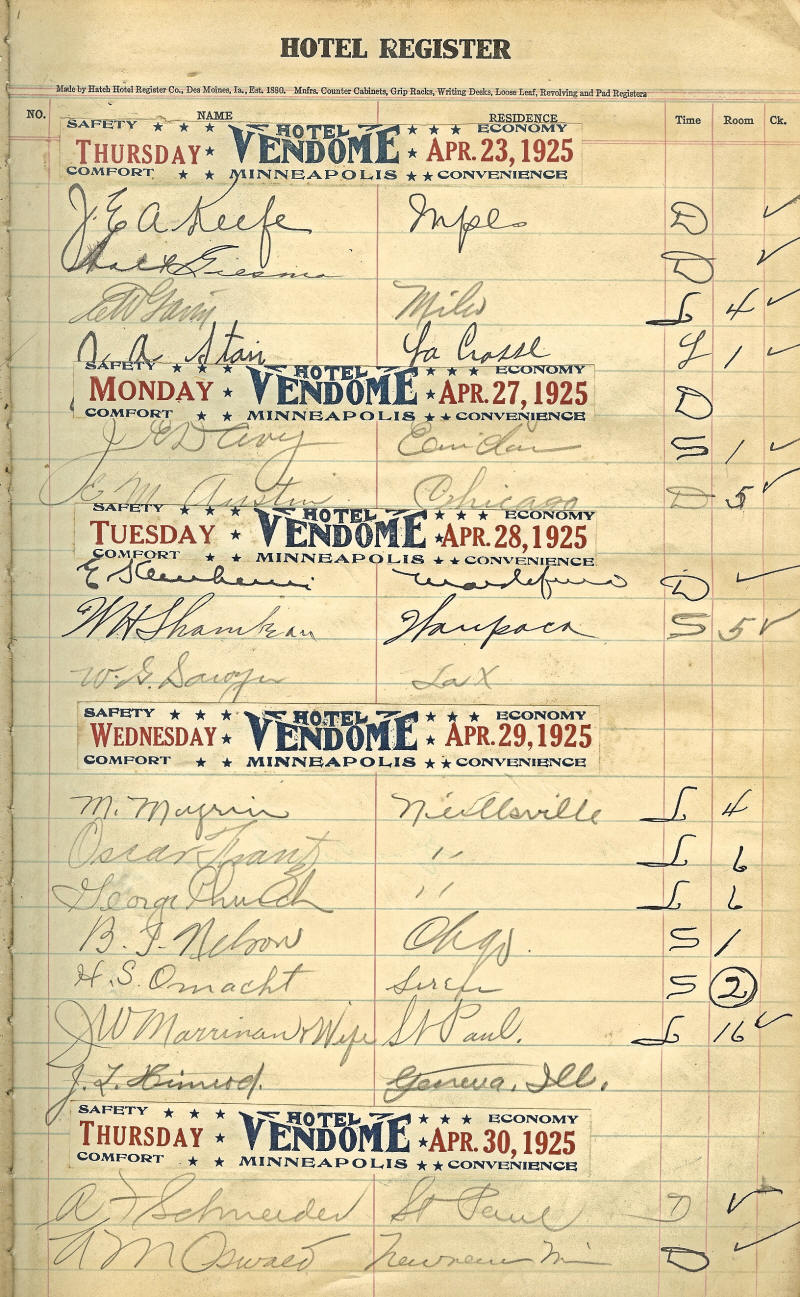 HOTEL REGISTER
Made by Hatch Hotel Register Co., Des Moines, Ia., Est. 1880. Mnfrs. Counter Cabinets, Grip Racks, Writing Desks, Loose Leaf, Revolving and Pad Registers
NO. NAME RESIDENCE Time Room Ck.
SAFETY HOTEL ECONOMY
THURSDAY VENDOME APR. 23, 1925
COMFORT MINNEAPOLIS CONVENIENCE
J. E. A. Keefe Mpls D ✓
D ✓
Milw L 4 ✓
A. Stair La Crosse L 1 ✓
SAFETY HOTEL ECONOMY
MONDAY VENDOME APR. 27, 1925 D
COMFORT MINNEAPOLIS CONVENIENCE
J S 1 ✓
E M Austin Chicago D 5 ✓
SAFETY HOTEL ECONOMY
TUESDAY VENDOME APR. 28, 1925
COMFORT MINNEAPOLIS CONVENIENCE
E D ✓
W H Waupaca S 5 ✓
W. G. Sawyer La X
SAFETY HOTEL ECONOMY
WEDNESDAY VENDOME APR. 29, 1925
COMFORT MINNEAPOLIS CONVENIENCE
M. Neillsville L 4
Oscar " L 6
George Church " L 6
B. F. Nelson Chgo. S 1
H. S. Omacht Siren S 2
J W Marrinan & Wife St Paul. L 16 ✓
J. L. Himrod. Geneva, Ill.
SAFETY HOTEL ECONOMY
THURSDAY VENDOME APR. 30, 1925
COMFORT MINNEAPOLIS CONVENIENCE
A F Schneider St Paul D ✓
A M Oswald D ✓